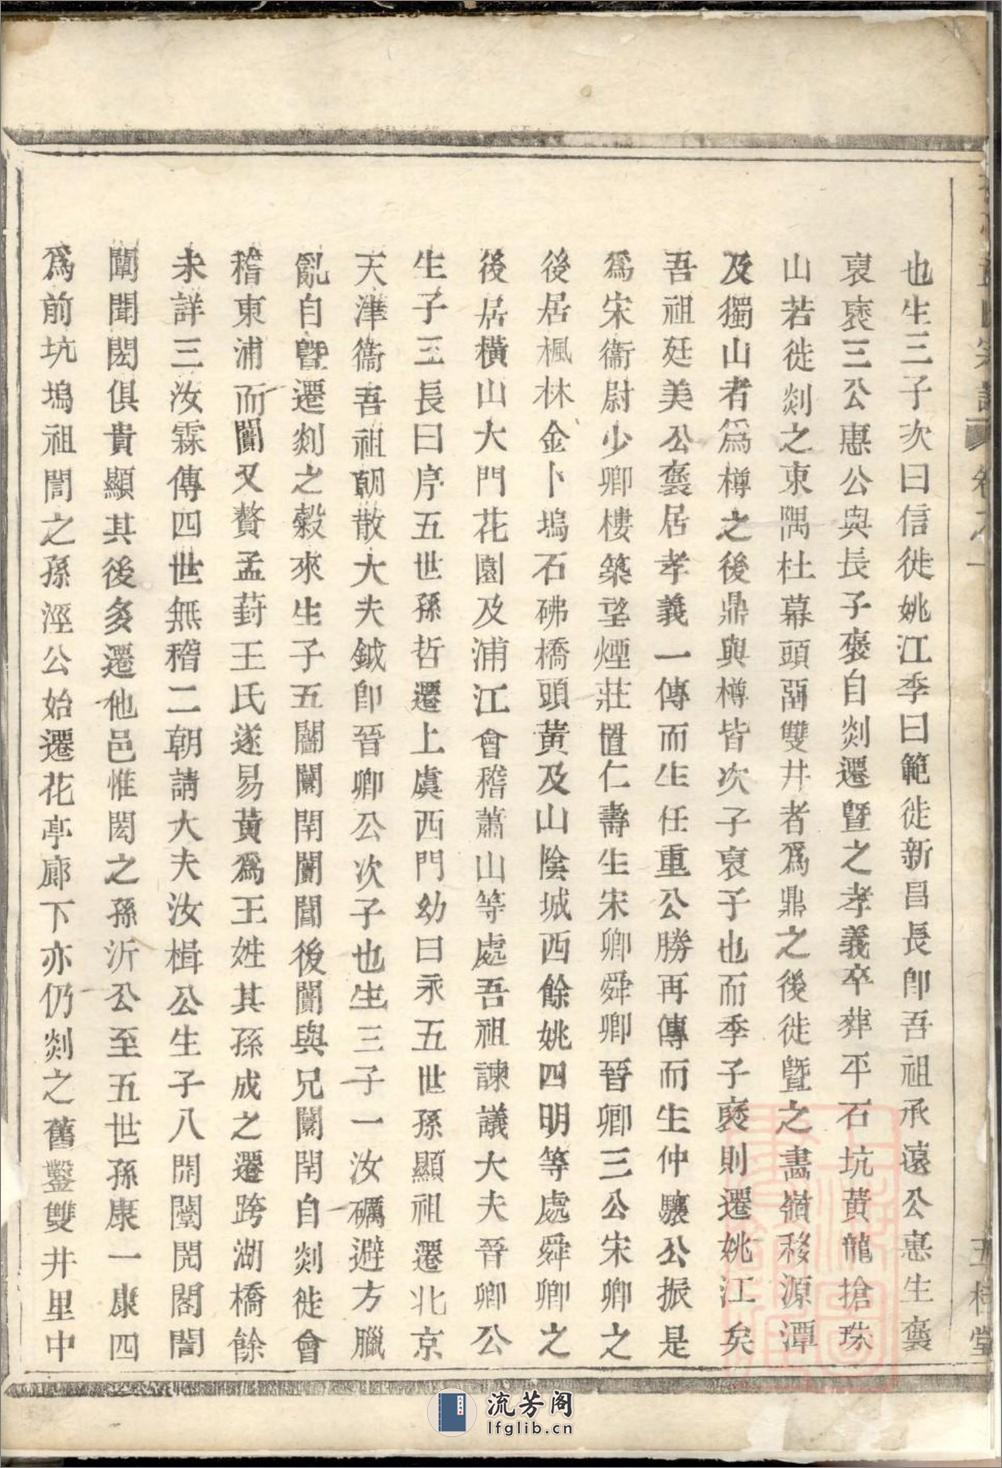 也生三子次曰信徙姚江季曰範徙新昌長卽吾祖承遠公惠生襃
裒褎三公惠公與長子褒自剡遷暨之孝義卒葬平石坑黃龍搶珠
山若徙剡之東隅杜幕頭兩雙井者爲鼎之後徙暨之畵嶺移源潭
及獨山者爲樽之後鼎與樽皆次子裒子也而季子褎則遷姚江矣
吾祖廷美公襃居孝義一傳而生任重公勝再傳而生仲驤公振是
爲宋衞尉少卿樓築望煙莊置仁壽生宋卿舜卿晉卿三公宋卿之
後居楓林金卜塢石砩橋頭黃及山陰城西餘姚四明等處舜卿之
後居橫山大門花園及浦江會稽蕭山等處吾祖諫議大夫晉卿公
生子二長曰序五世孫哲遷上虞西門幼曰永五世孫顯祖遷北京
天津衞吾祖朝散大夫鉞卽晉卿公次子也生三子一汝礪避方臘
亂自暨遷剡之榖來生子五闢闌閈闠閶後闠與兄闌閈自剡徙會
稽東浦而闠又贅孟葑王氏遂易黃爲王姓其孫成之遷跨湖橋餘
未詳三汝霖傳四世無稽二朝請大夫汝楫公生子八開闓閱閣誾
闈聞閎俱貴顯其後多遷他邑惟閎之孫沂公至五世孫康一康四
爲前坑塢祖誾之孫涇公始遷花亭廊下亦仍剡之舊鑿雙井里中
卷之一
五桂堂
流芳阁
lfglib.cn